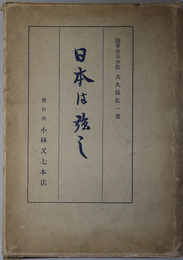 陸軍歩兵少佐 大久保弘一著
日本は強し
発行所 小林又七本店